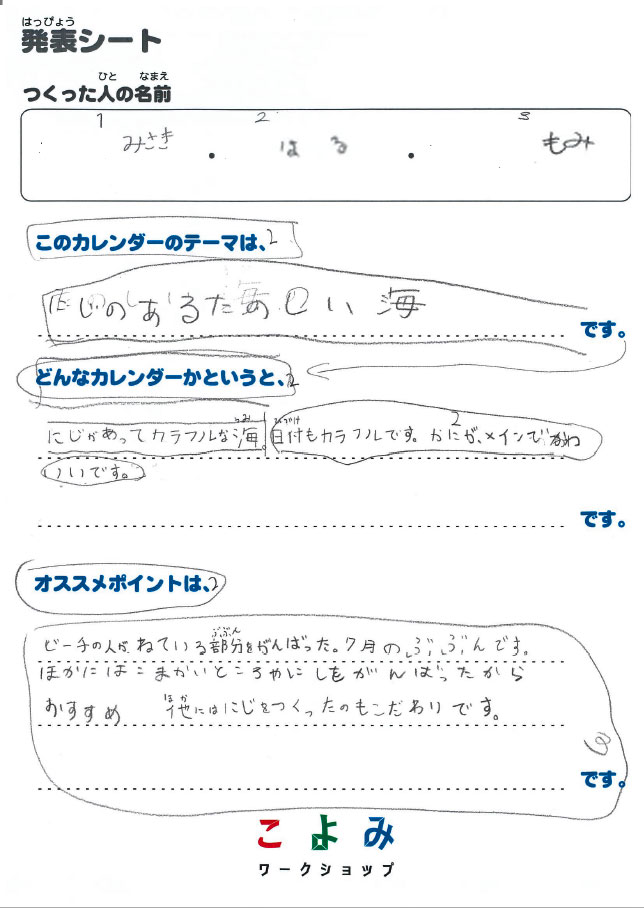 はっぴょう
発表シート
ひと なまえ
つくった人の名前
1 2 3
みさき ・ はる ・ もみ
このカレンダーのテーマは、2
にじのあるたのしい海
です。
どんなカレンダーかというと、2
うみ ひづけ 2
にじがあってカラフルな海。日付もカラフルです。かにが、メインでかわ
いいです。
です。
オススメポイントは、2
ぶぶん
ビーチの人がねている部分をがんばった。7月のぶぶんです。
ほかにはこまかいところやにじもがんばったから
ほか
おすすめ 他にはにじをつくったのもこだわりです。
3
です。
こよみ
ワークショップ